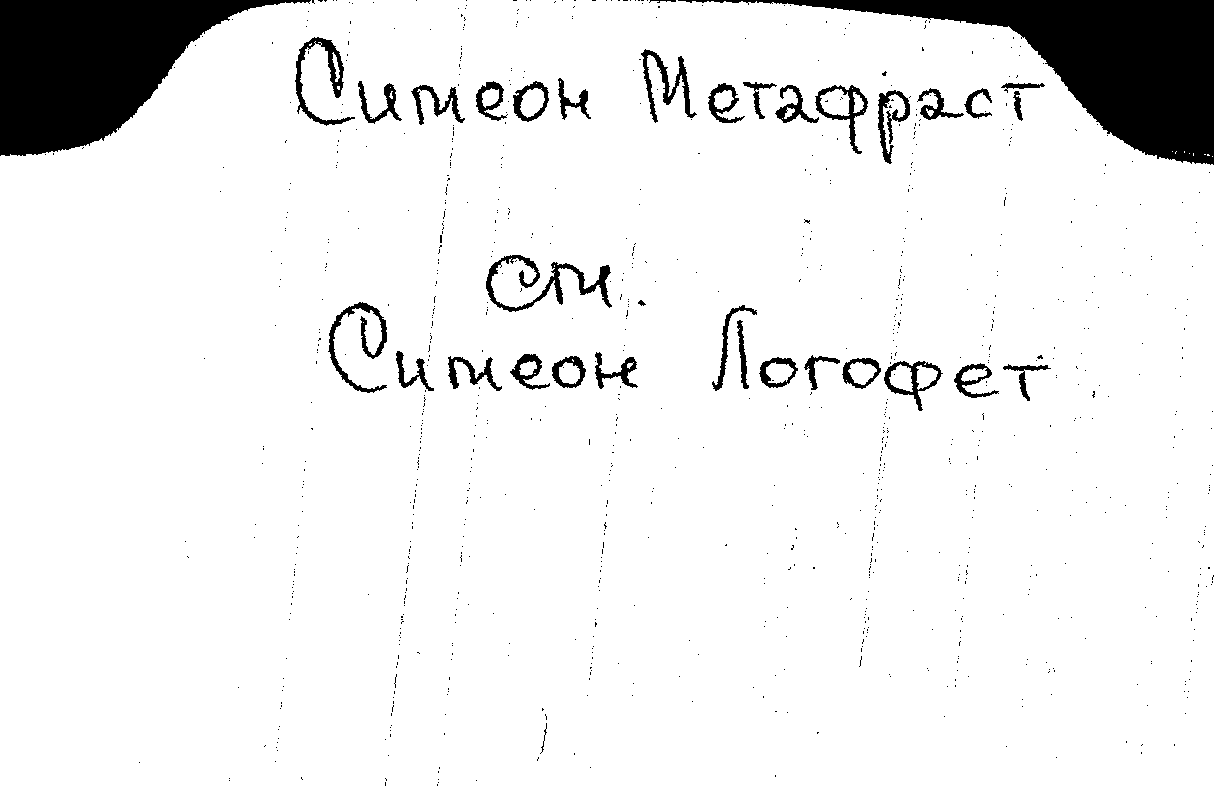 Симеон Метафраст
см.
Симеон Логофет